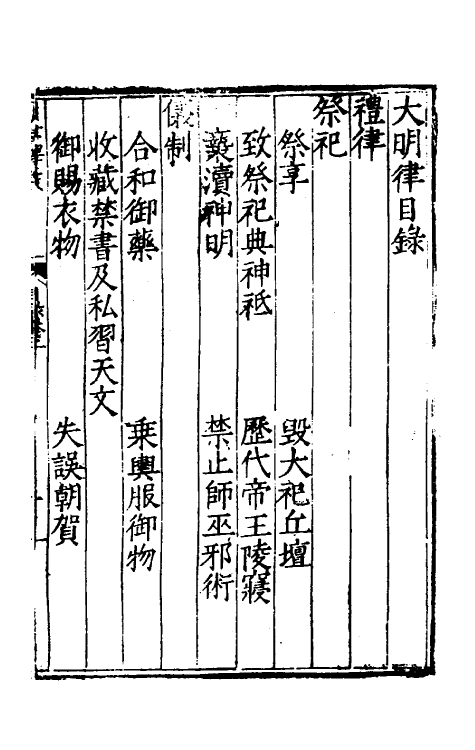 大明律目錄
禮律
祭祀
祭享　毀大祀丘壇
致祭祀典神祗　歷代帝王陵寢
褻瀆神明　禁止師巫邪術
儀制
合和御藥　乘輿服御物
收藏禁書及私習天文
御賜衣物　失誤朝賀